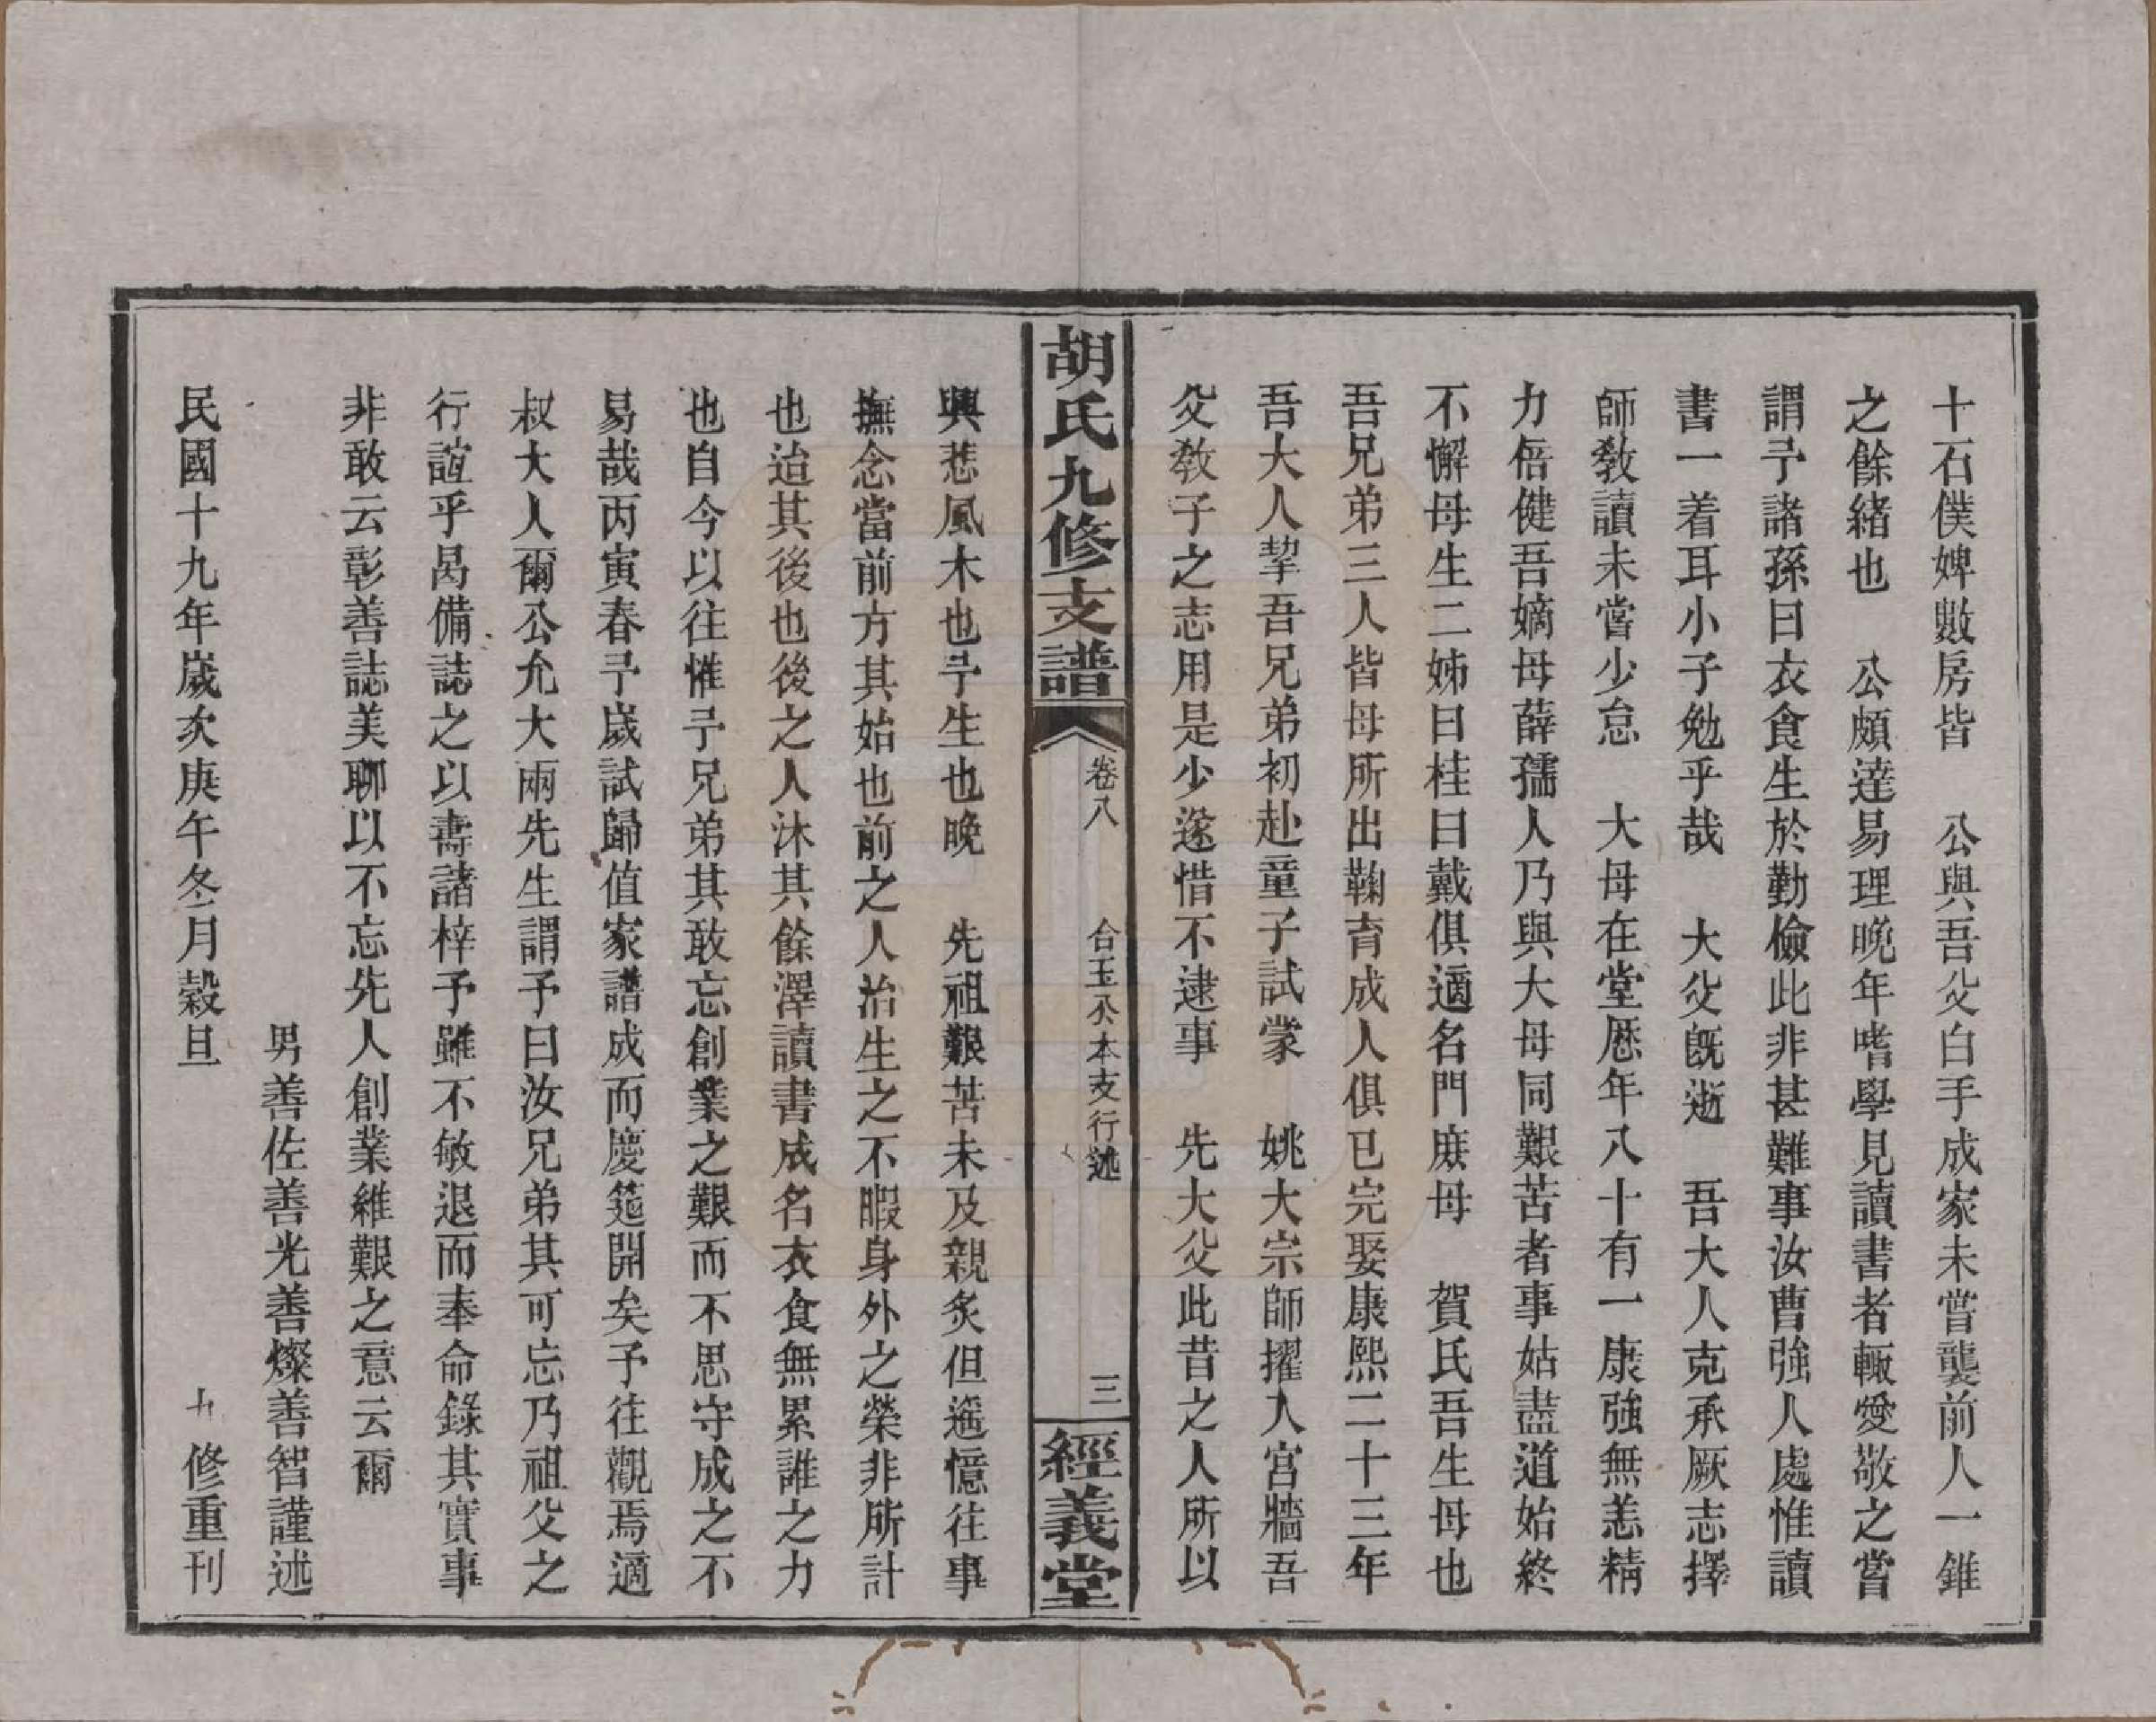 十石僕婢數房皆　公與吾父白手成家未嘗襲前人一錐
之餘緒也　公頗達易理晚年嗜學見讀書者輙愛敬之嘗
謂予諸孫曰衣食生於勤儉此非甚難事汝曹強人處惟讀
書一着耳小子勉乎哉　大父旣逝　吾大人克承厥志擇
師教讀未嘗少怠　大母在堂歷年八十有一康強無恙精
力倍健吾嫡母薛孺人乃與大母同艱苦者事姑盡道始終
不懈母生二姊曰桂曰戴俱適名門庶母　賀氏吾生母也
吾兄弟三人皆母所出鞠育成人俱已完娶康熙二十三年
吾大人挈吾兄弟初赴童子試蒙　姚大宗師擢入宮牆吾
父教子之志用是少遂惜不逮事　先大父此昔之人所以
胡氏九修支譜
卷八
合玉公本支行述
三
經義堂
興悲風木也予生也晚　先祖艱苦未及親炙但遡憶往事
撫念當前方其始也前之人治生之不暇身外之榮非所計
也迨其後也後之人沐其餘澤讀書成名衣食無累誰之力
也自今以往惟予兄弟其敢忘創業之艱而不思守成之不
易哉丙寅春予歲試歸值家譜成而慶筵開矣予往觀焉適
叔大人爾公允大兩先生謂予曰汝兄弟其可忘乃祖父之
行誼乎曷備誌之以壽諸梓予雖不敏退而奉命錄其實事
非敢云彰善誌美聊以不忘先人創業維艱之意云爾
男善佐善光善燦善智謹述
民國十九年歲次庚午冬月穀旦　九修重刊